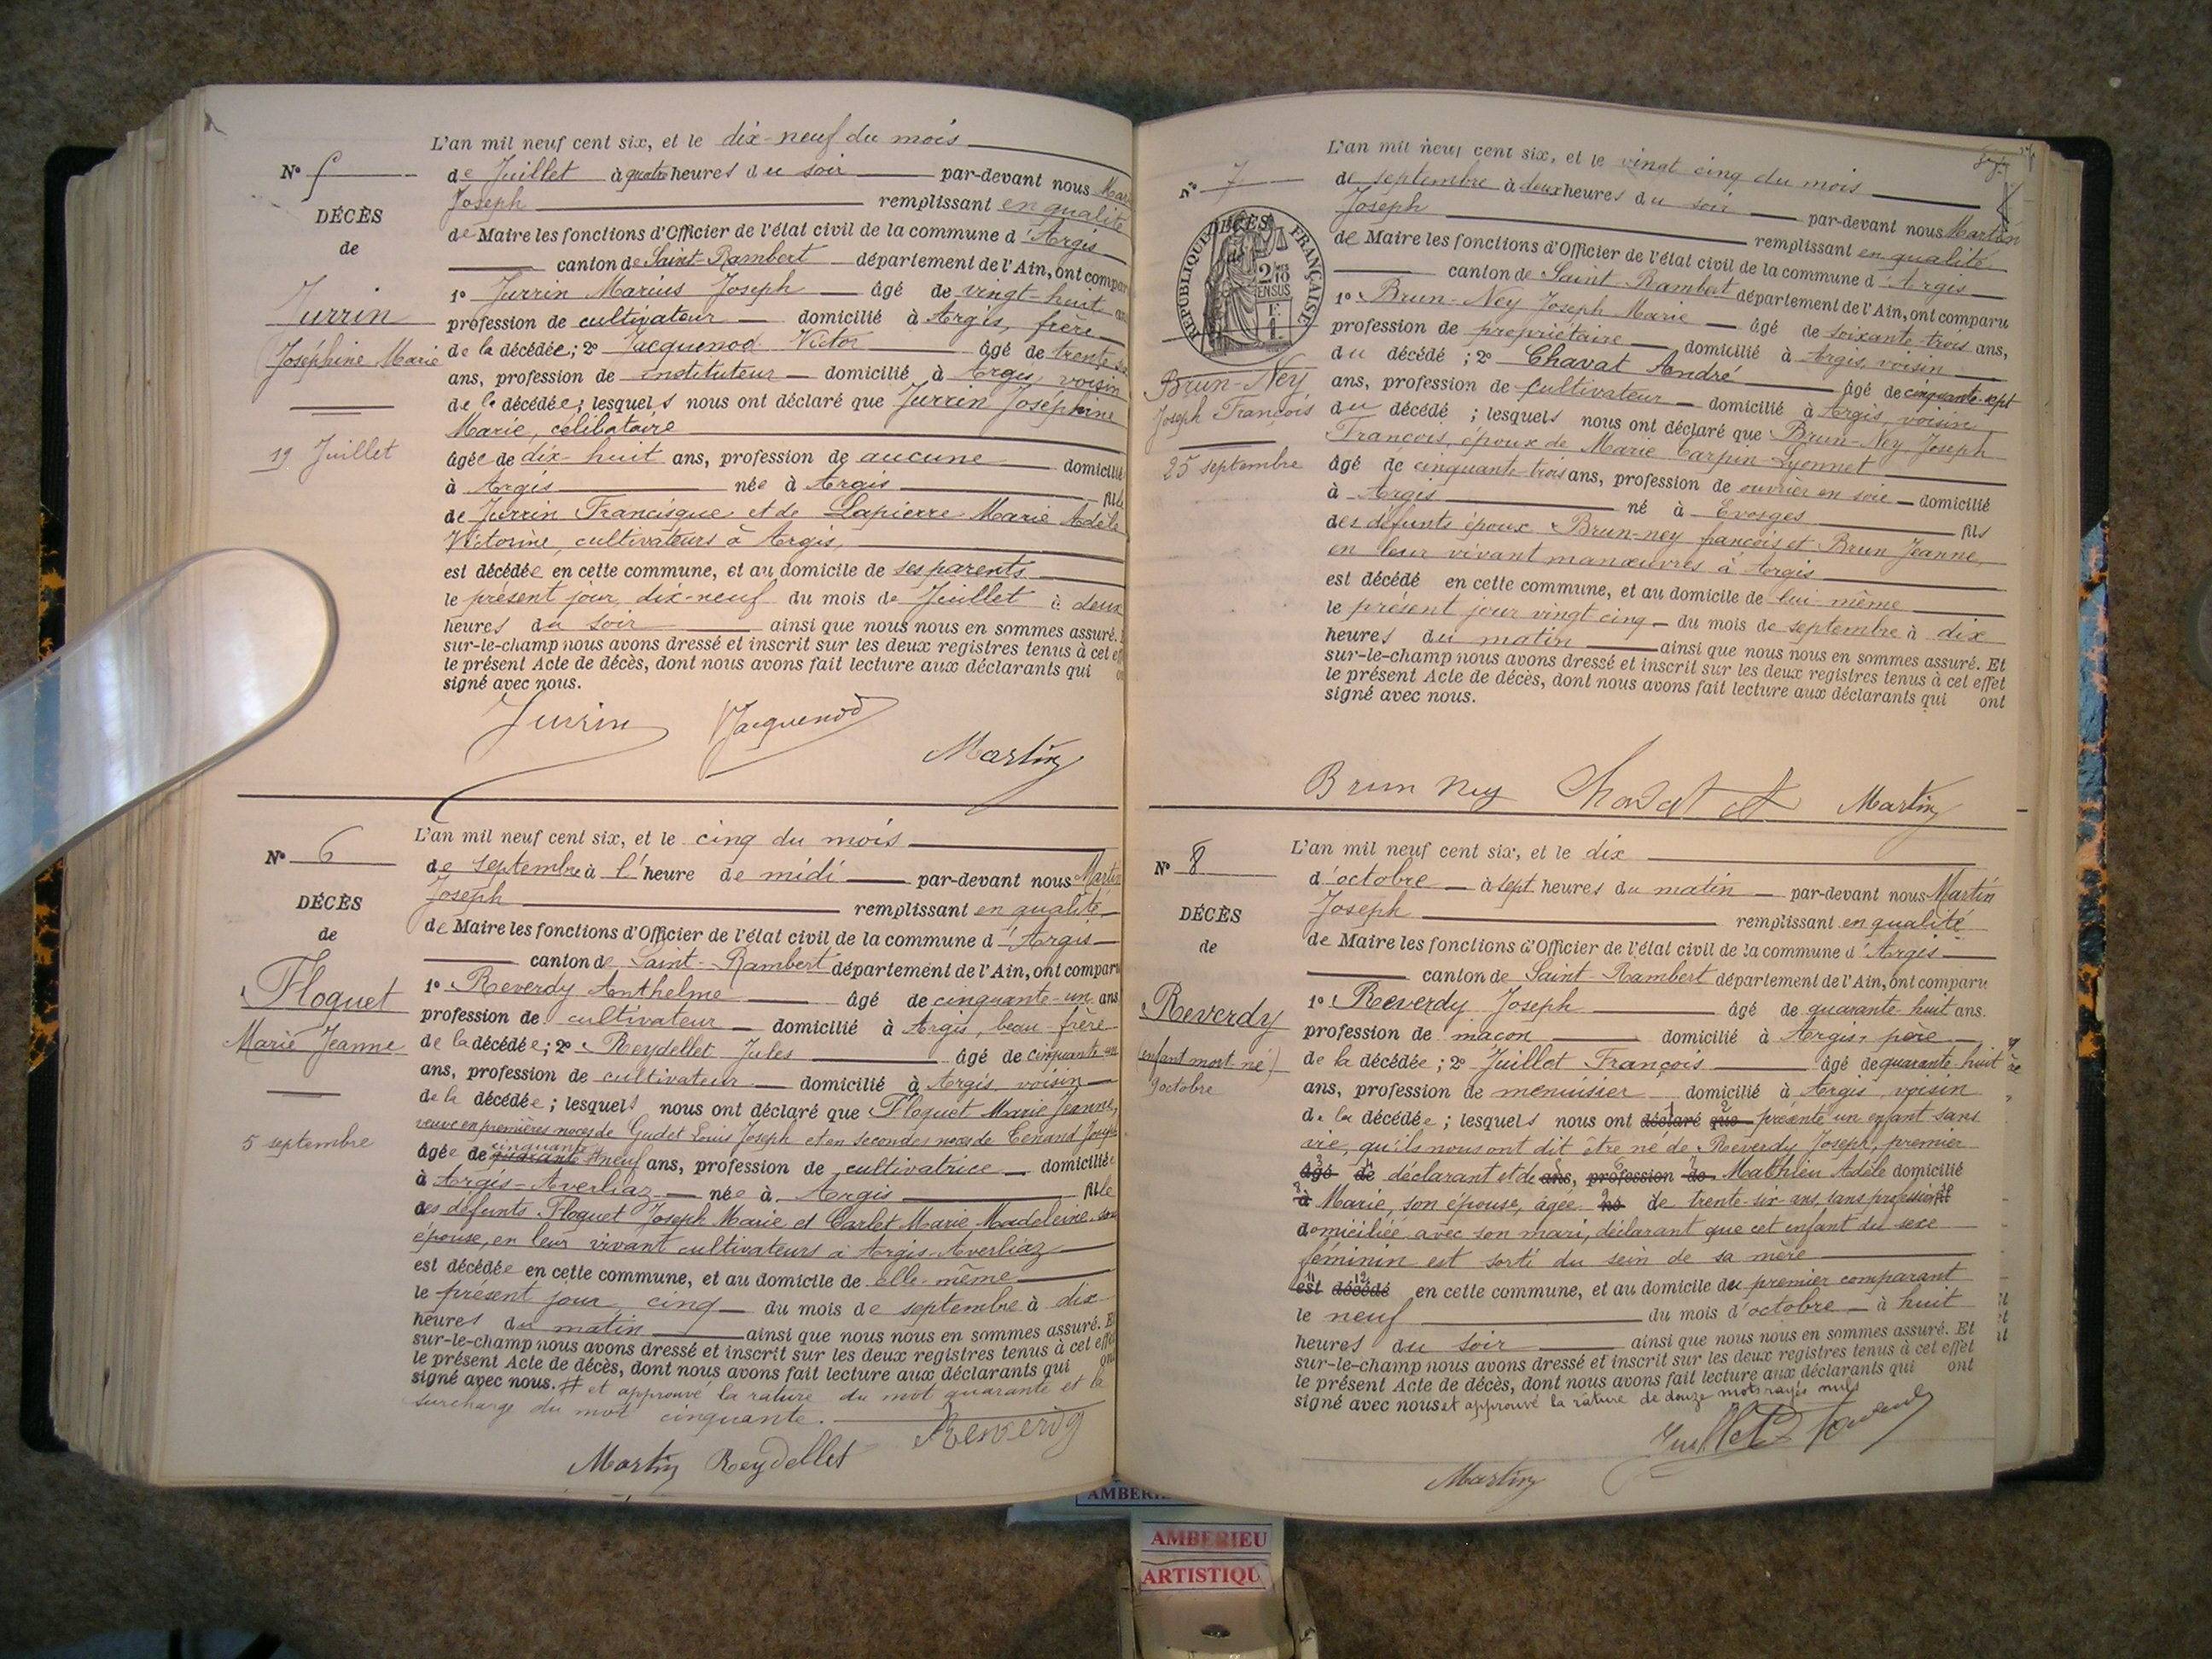 L'an mil neuf cent six, et le dix-neuf du mois
N° 5
de Juillet à quatre heures du soir par-devant nous
Joseph remplissant en qualité
DÉCÈS
de Maire les fonctions d'Officier de l'état civil de la commune d'Argis
de
canton de Saint-Rambert département de l'Ain, ont compar
1° Jurrin Marius Joseph âgé de vingt-huit
Jurrin
profession de cultivateur domicilié à Argis, frère
Joséphine Marie
de la décédée; 2° Jacquenod Victor âgé de
ans, profession de instituteur domicilié à Argis, voisin
de la décédée; lesquels nous ont déclaré que Jurrin Joséphine
Marie, célibataire
19 Juillet
âgée de dix-huit ans, profession de aucune domicilié
à Argis née à Argis fille
de Jurrin Francisque et de Lapierre Marie Adèle
Victorine, cultivateurs à Argis,
est décédée en cette commune, et au domicile de ses parents
le présent jour, dix-neuf du mois de Juillet à deux
heures du soir ainsi que nous nous en sommes assuré.
sur-le-champ nous avons dressé et inscrit sur les deux registres tenus à cet
le présent Acte de décès, dont nous avons fait lecture aux déclarants qui
signé avec nous.
Jurrin VJacquenod
Martin
L'an mil neuf cent six, et le cinq du mois
N° 6
de septembre à l'heure de midi par-devant nous Martin
Joseph remplissant en qualité
DÉCÈS
de Maire les fonctions d'Officier de l'état civil de la commune d'Argis
de
canton de Saint-Rambert département de l'Ain, ont comparu
Floquet
1° Reverdy Anthelme âgé de cinquante-un ans
profession de cultivateur domicilié à Argis, beau-frère
Marie Jeanne
de la décédée; 2° Reydellet Jules âgé de cinquante-un
ans, profession de cultivateur domicilié à Argis, voisin
de la décédée; lesquels nous ont déclaré que Floquet Marie Jeanne,
veuve en premières noces de Gudet Louis Joseph et en secondes noces de Tenand Joseph
5 septembre
cinquante
âgée de quarante neuf ans, profession de cultivatrice domiciliée
à Argis-Averliaz née à Argis fille
des défunts Floquet Joseph Marie et Carlet Marie Madeleine son
épouse, en leur vivant cultivateurs à Argis-Averliaz
est décédée en cette commune, et au domicile de elle-même
le présent jour cinq du mois de septembre à dix
heures du matin ainsi que nous nous en sommes assuré. E
sur-le-champ nous avons dressé et inscrit sur les deux registres tenus à cet effe
le présent Acte de décès, dont nous avons fait lecture aux déclarants qui ont
signé avec nous. # et approuvé la rature du mot quarante et la
surcharge du mot cinquante.
Martin Reydellet Reverdy
L'an mil neuf cent six, et le vingt cinq du mois
N° 7
de septembre à deux heures du soir par-devant nous Martin
Joseph remplissant en qualité
DÉCÈS
RÉPUBLIQUE FRANÇAISE
de Maire les fonctions d'Officier de l'état civil de la commune d'Argis
canton de Saint-Rambert département de l'Ain, ont comparu
1° Brun-Ney Joseph Marie âgé de soixante-trois ans,
profession de propriétaire domicilié à Argis, voisin
du décédé; 2° Chavat André âgé de cinquante-sept
Brun-Ney
ans, profession de cultivateur domicilié à Argis, voisin
Joseph François
du décédé; lesquels nous ont déclaré que Brun-Ney Joseph
François, époux de Marie Carpin-Lyonnet
25 septembre
âgé de cinquante-trois ans, profession de ouvrier en soie domicilié
à Argis né à Evosges fils
des défunts époux Brun-ney françois et Brun Jeanne,
en leur vivant manœuvres à Argis
est décédé en cette commune, et au domicile de lui-même
le présent jour vingt cinq du mois de septembre à dix
heures du matin ainsi que nous nous en sommes assuré. Et
sur-le-champ nous avons dressé et inscrit sur les deux registres tenus à cet effet
le présent Acte de décès, dont nous avons fait lecture aux déclarants qui ont
signé avec nous.
Brun Ney Chavat Martin
L'an mil neuf cent six, et le dix
N° 8
d'octobre à sept heures du matin par-devant nous Martin
Joseph remplissant en qualité
DÉCÈS
de Maire les fonctions d'Officier de l'état civil de la commune d'Argis
de
canton de Saint-Rambert département de l'Ain, ont comparu
Reverdy
1° Reverdy Joseph âgé de quarante-huit ans.
profession de maçon domicilié à Argis, père
(enfant mort-né)
de la décédée; 2° Juillet François âgé de quarante-huit
9 octobre
ans, profession de menuisier domicilié à Argis, voisin
de la décédée; lesquels nous ont déclaré que présenté un enfant sans
vie, qu'ils nous ont dit être né de Reverdy Joseph, premier
âgé de déclarant et de ans, profession de Mathieu Adèle domicilié
à Marie, son épouse, âgée né de trente-six ans, sans profession
domiciliée avec son mari, déclarant que cet enfant du sexe
féminin est sorti du sein de sa mère
est décédé en cette commune, et au domicile du premier comparant
le neuf du mois d'octobre à huit
heures du soir ainsi que nous nous en sommes assuré. Et
sur-le-champ nous avons dressé et inscrit sur les deux registres tenus à cet effet
le présent Acte de décès, dont nous avons fait lecture aux déclarants qui ont
signé avec nous et approuvé la rature de douze mots rayés nuls
Juillet
Martin
AMBERIEU
ARTISTIQU